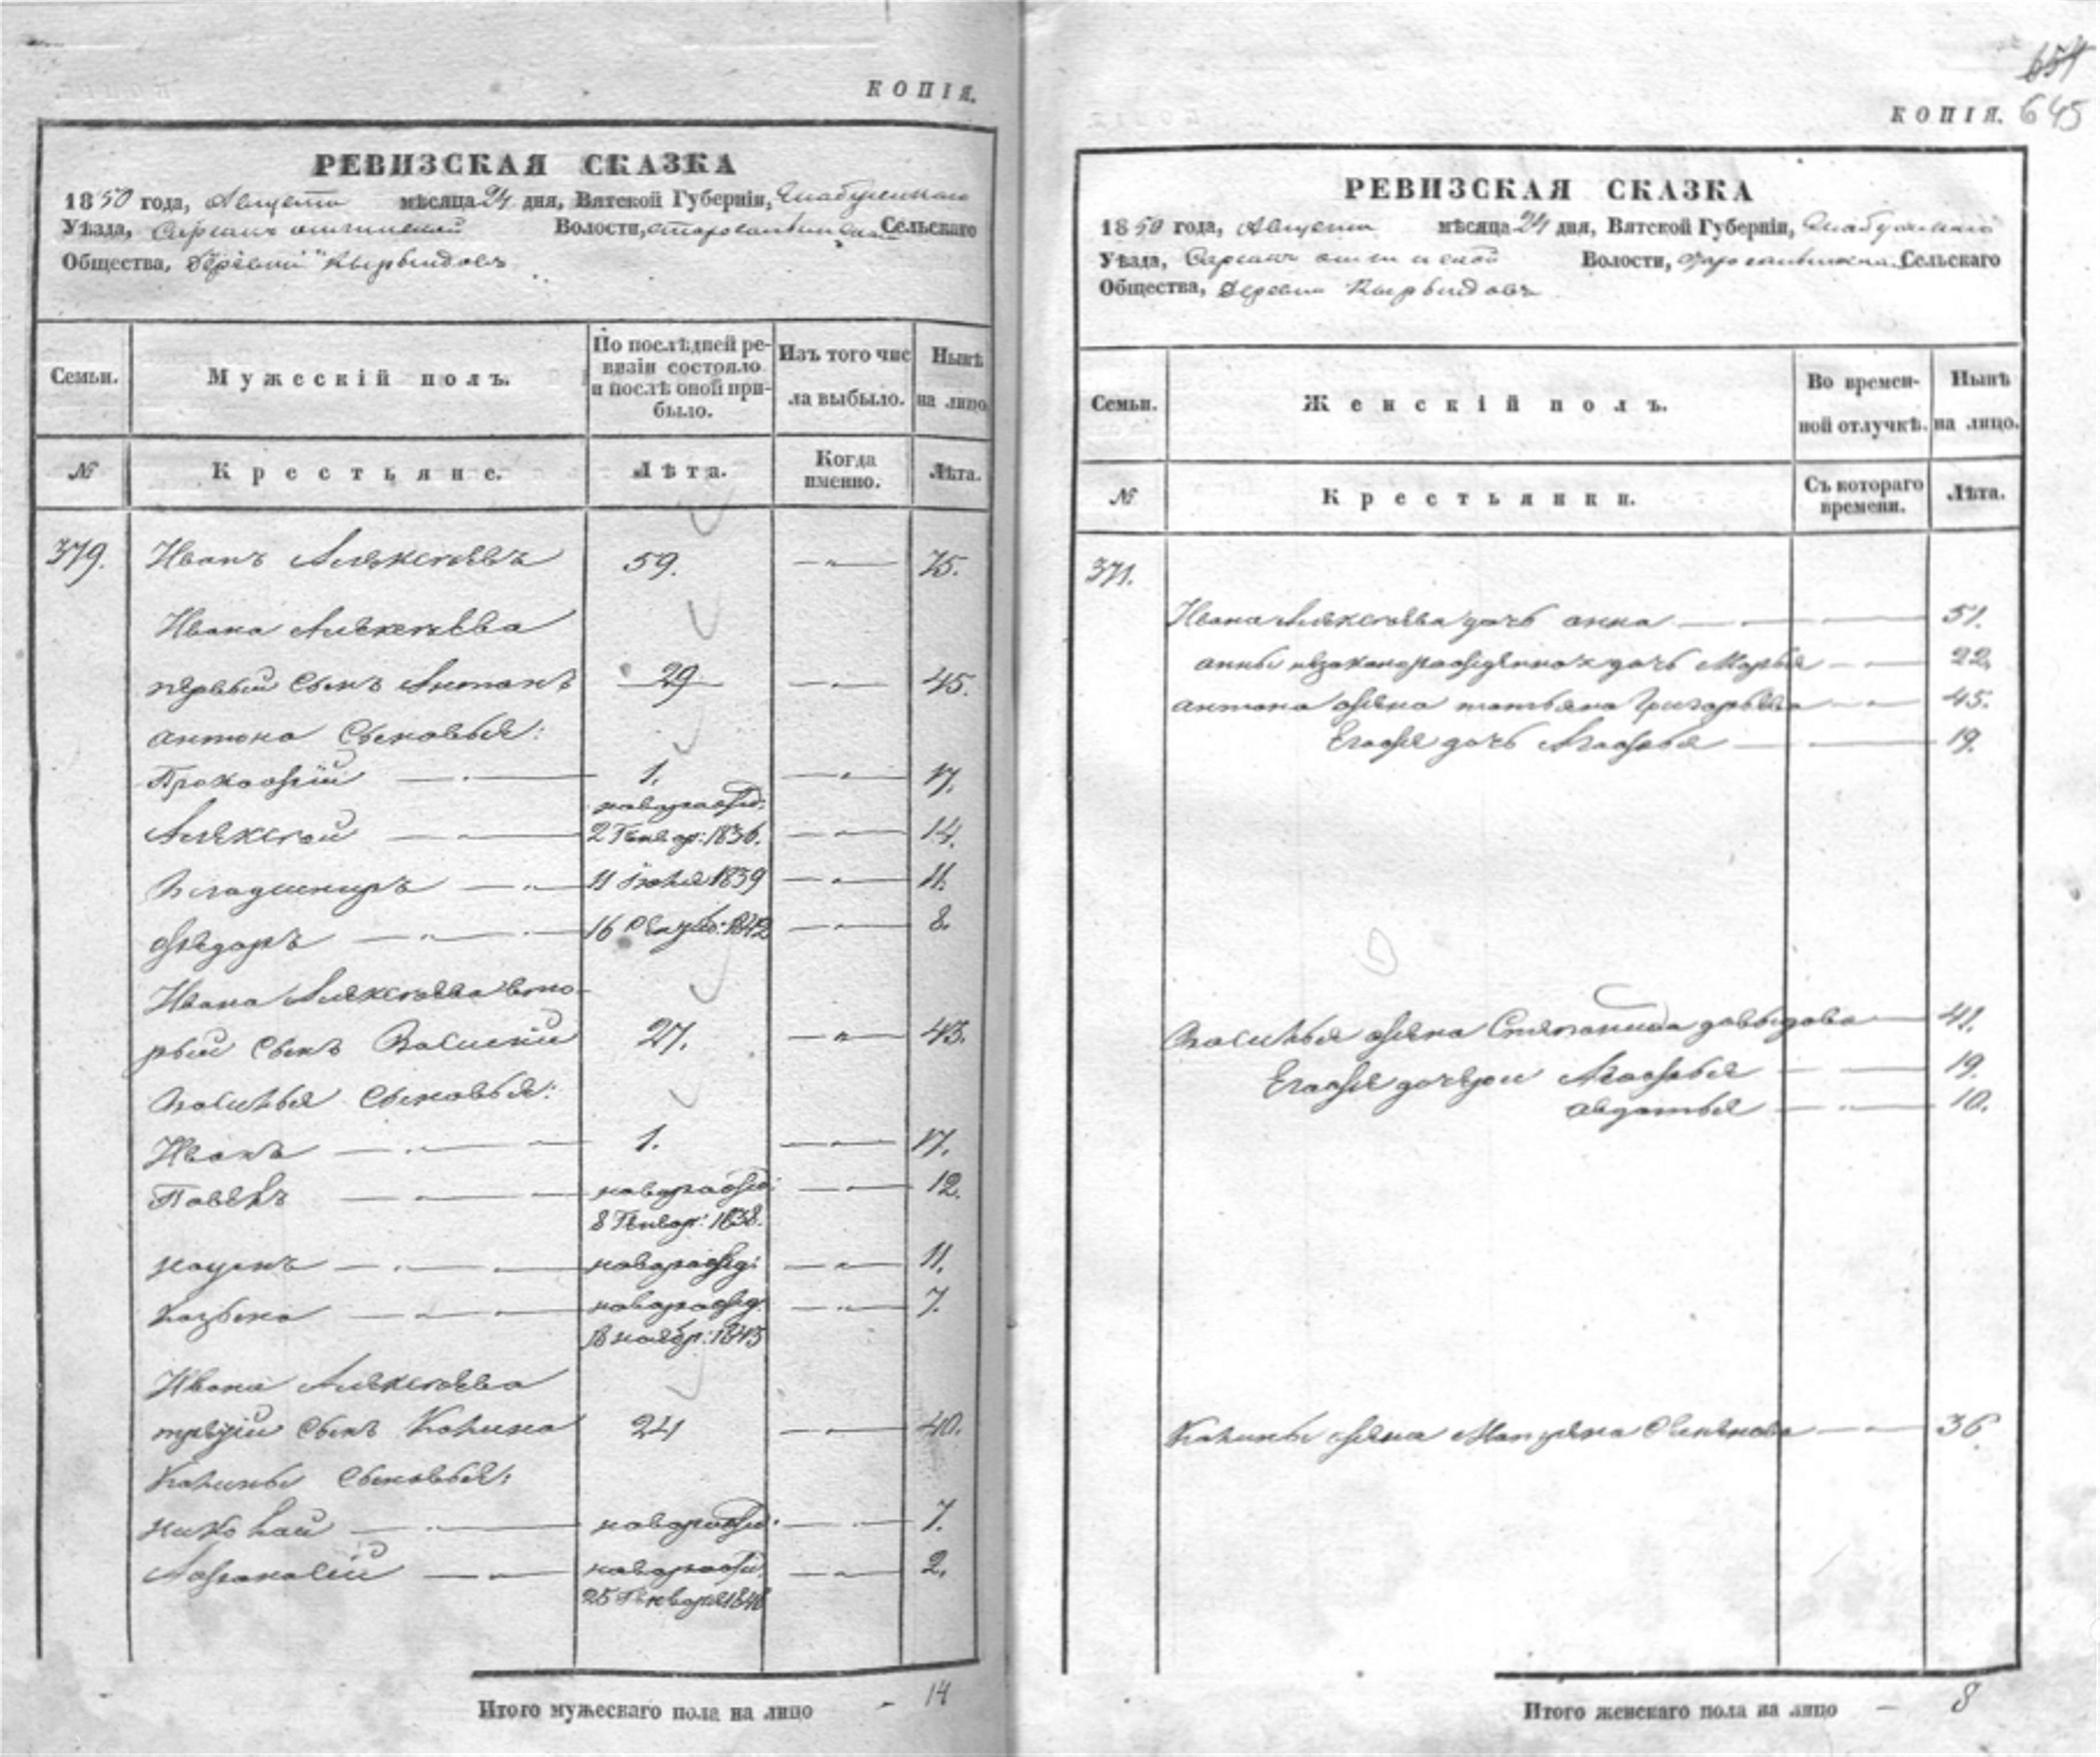 КОПІЯ.
РЕВИЗСКАЯ СКАЗКА
1850 года, Августа мѣсяца 24 дня, Вятской Губерніи, Елабужскаго
Уѣзда, Волости, Сельскаго
Общества, Деревни Кырындовъ
Семьи. Мужескій полъ. По послѣдней ревизіи состояло и послѣ оной прибыло. Изъ того числа выбыло. Нынѣ на лицо
№ Крестьяне. Лѣта. Когда именно. Лѣта.
379. Иванъ Алексѣевъ 59. — „ — 75.
Ивана Алексѣева
первый сынъ Антонъ 29 — „ — 45.
Антона сыновья:
Прокофій — „ — 1. — „ — 17.
новорожд:
Алексѣй — „ — 2 Генвар: 1836. — „ — 14.
Владимиръ — „ — 11 Іюля 1839 — „ — 11.
Ѳедоръ — „ — 16 1842 — „ — 8.
Ивана Алексѣева вто-
рый сынъ Василий 27. — „ — 43.
Василья сыновья:
Иванъ — „ — 1. — „ — 17.
Павелъ — „ — новорожд: — „ — 12.
8 Генвар: 1838.
Наумъ — „ — новорожд: — „ — 11.
Козьма — „ — новорожд. — „ — 7.
18 ноябр: 1843
Ивана Алексѣева
третій сынъ Калина 24 — „ — 40.
Калины сыновья:
Николай — „ — новорожд: — „ — 7.
Афанасій — „ — новорожд. — „ — 2.
25 Генваря 1848
Итого мужескаго пола на лицо - 14
654
КОПІЯ. 645
РЕВИЗСКАЯ СКАЗКА
1850 года, Августа мѣсяца 24 дня, Вятской Губерніи, Елабужскаго
Уѣзда, Волости, Сельскаго
Общества, Деревни Кырындовъ
Семьи. Женскій полъ. Во временной отлучкѣ. Нынѣ на лицо.
№ Крестьянки. Съ котораго времени. Лѣта.
371.
Ивана Алексѣева дочь Анна — „ — 51.
Анны незаконорожденная дочь Марья — „ — 22.
Антона жена Татьяна Григорьева — „ — 45.
Егоже дочь Агафья — „ — 19.
Василья жена Степанида Давыдова — 41.
Егоже дочери Агафья — „ — 19.
Авдотья — „ — 10.
Калины жена Семенова — „ — 36
Итого женскаго пола на лицо — 8